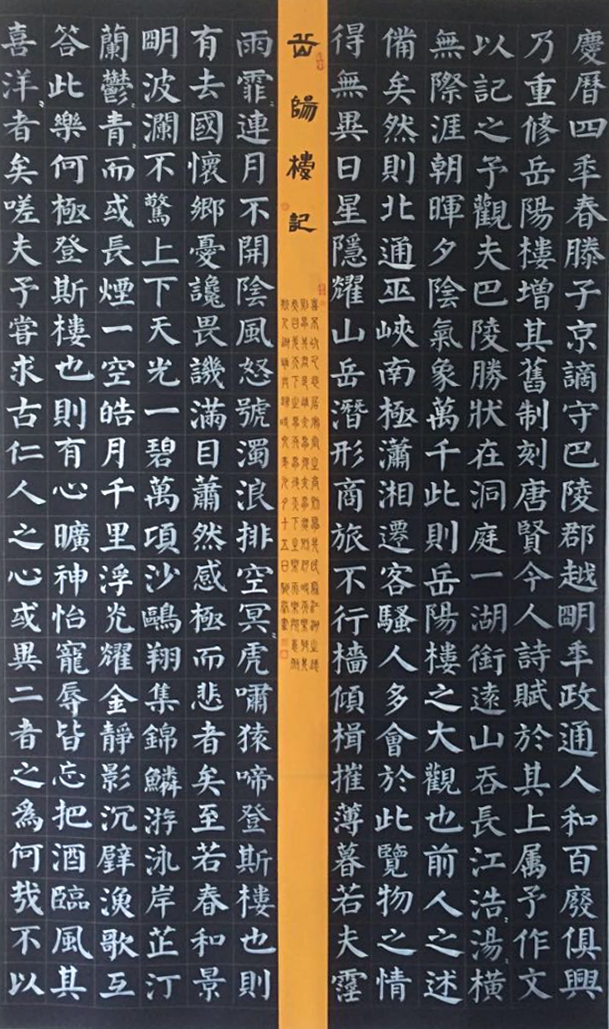 慶曆四秊春滕子京謫守巴陵郡越眀秊政通人和百廢俱興
乃重修岳陽樓增其舊制刻唐賢今人詩賦於其上属予作文
以記之予觀夫巴陵勝状在洞庭一湖銜遠山吞長江浩〻湯〻橫
無際涯朝暉夕陰氣象萬千此則岳陽樓之大觀也前人之述
備矣然則北通巫峽南極瀟湘遷客騷人多會於此覽物之情
得無異日星隱耀山岳潛形商旅不行檣傾楫摧薄暮若夫霪
岳陽樓記
雨霏〻連月不開陰風怒號濁浪排空冥〻虎嘯猿啼登斯樓也則
有去國懷鄉憂讒畏譏滿目蕭然感極而悲者矣至若春和景
眀波瀾不驚上下天光一碧萬頃沙鷗翔集錦鱗游泳岸芷汀
蘭鬱〻青〻而或長煙一空皓月千里浮光耀金靜影沉璧漁歌互
答此樂何極登斯樓也則有心曠神怡寵辱皆忘把酒臨風其
喜洋〻者矣嗟夫予嘗求古仁人之心或異二者之為何哉不以